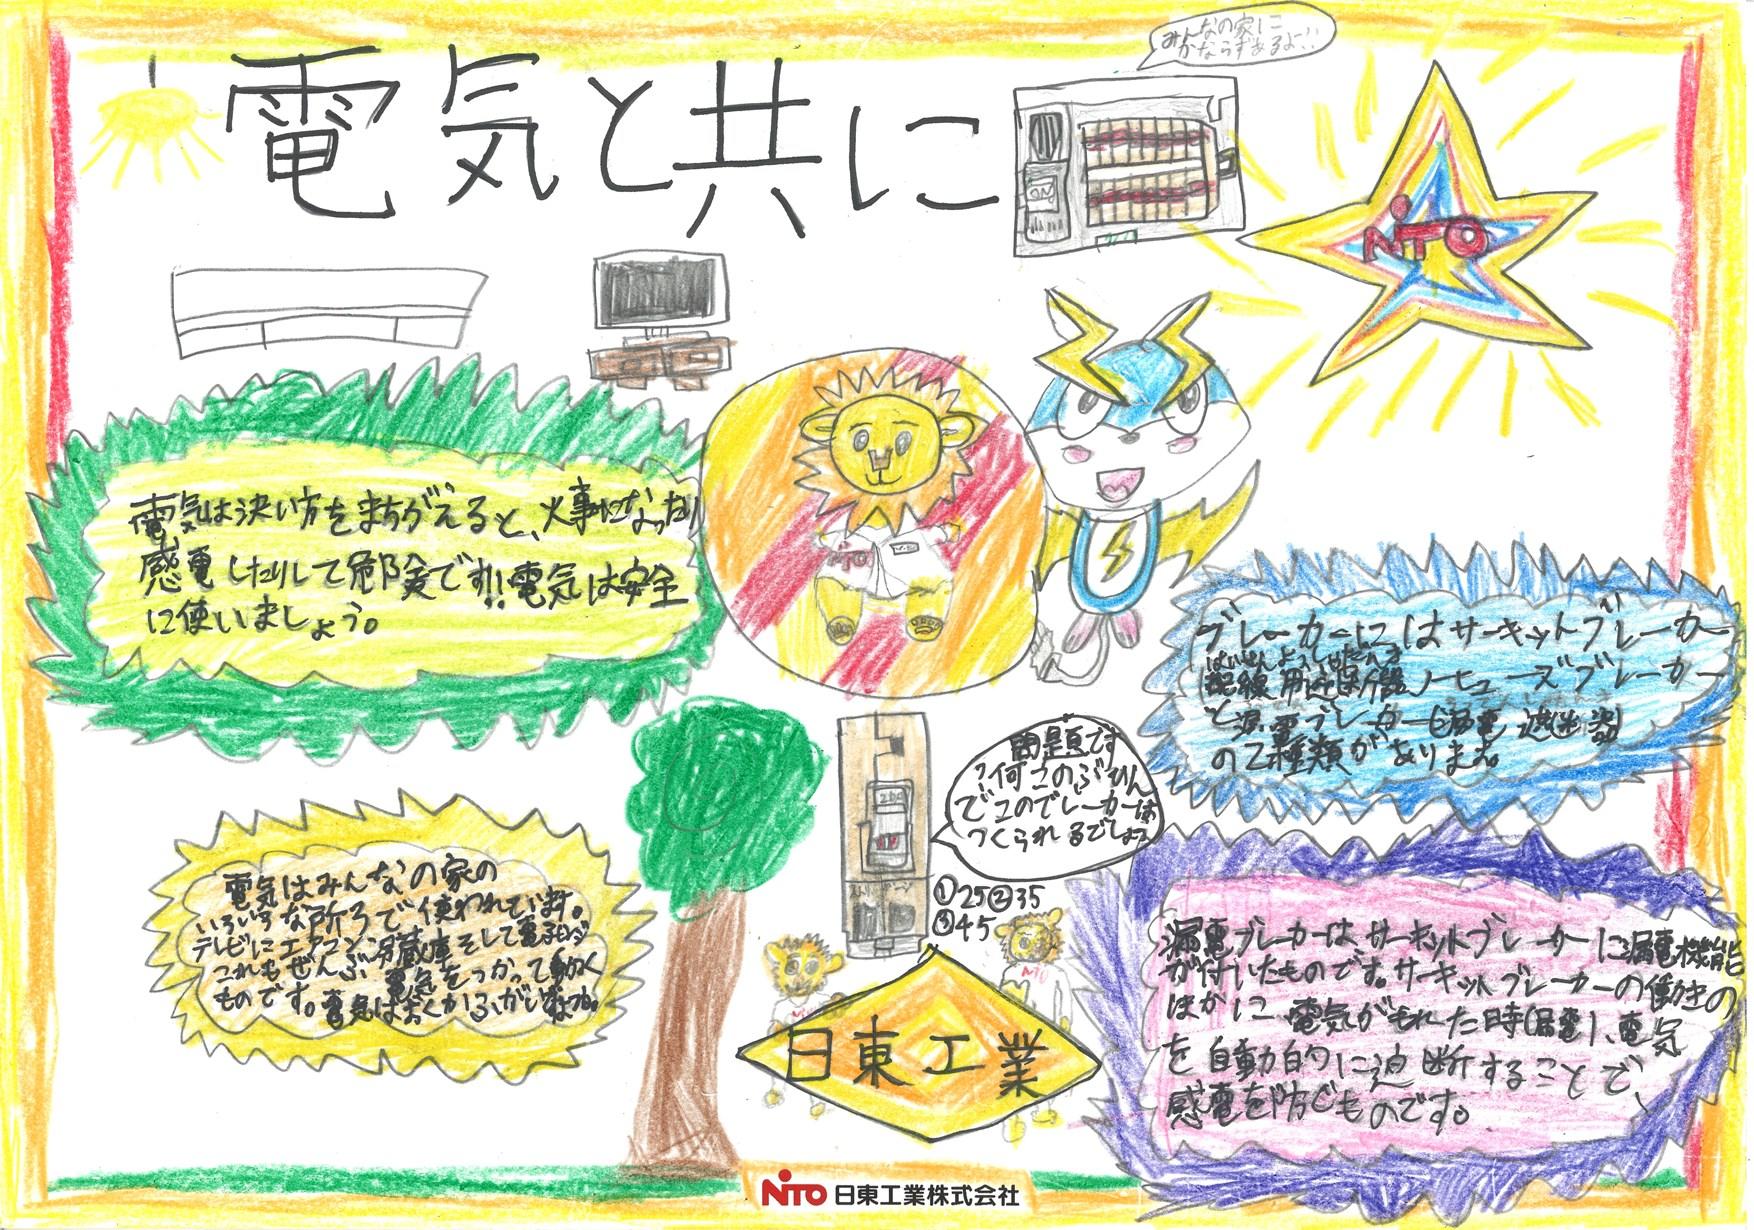 電気と共に
みんなの家に
かならずあるよ!!
ON
NiTO
電気は決い方をまちがえると、火事になったり
感電したりして危険です!!電気は安全
に使いましょう。
NiTO
ブレーカーにはサーキットブレーカー
配線用遮断器ノーヒューズブレーカー
と漏電ブレーカー(漏電遮断器)
の2種類があります。
問題です
?何このぶひん
でこのブレーカーは
つくられるでしょう
①25②35
③45
電気はみんなの家の
いろいろな所ろで使われています。
テレビにエアコン冷蔵庫そして電子レンジ
これもぜんぶ電気をつかって動く
ものです。電気はおくがふかいですね。
漏電ブレーカーはサーキットブレーカーに漏電機能
が付いたものです。サーキットブレーカーの働きの
ほかに、電気がもれた時(漏電)、電気
を自動的に遮断することで、
感電を防ぐものです。
日東工業
NiTO 日東工業株式会社